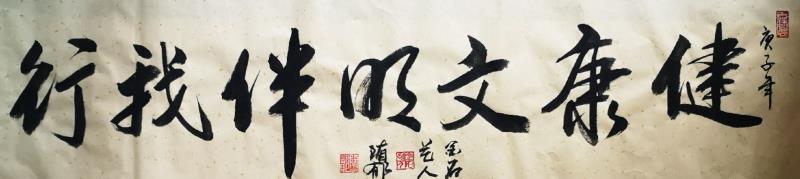 庚子年
健康文明伴我行
金石
艺人